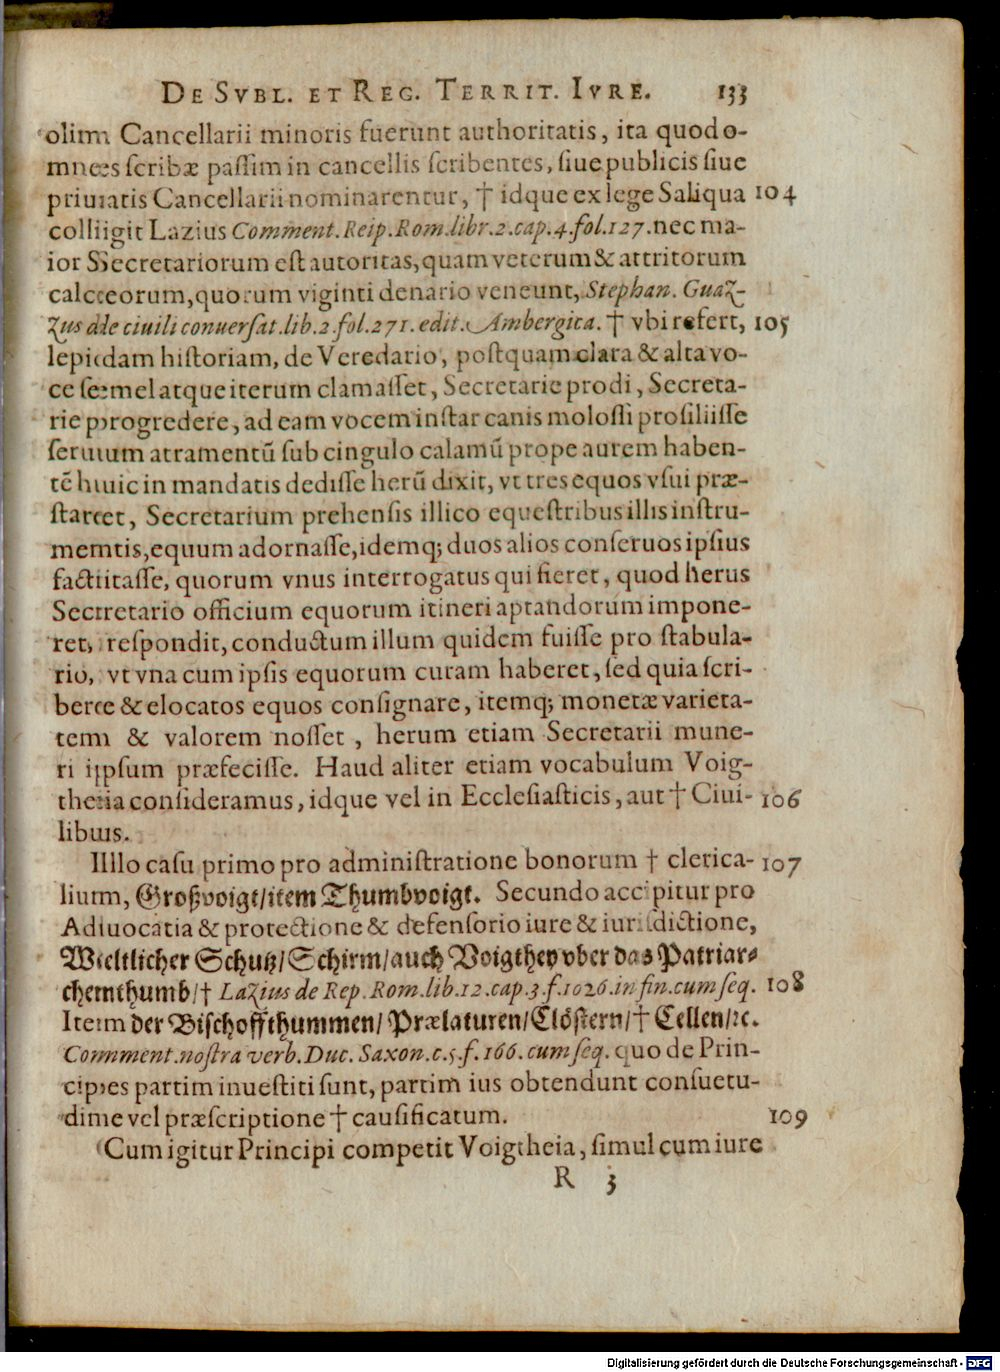 DE SVBL. ET REG. TERRIT. IVRE. 133
olim Cancellarii minoris fuerunt authoritatis, ita quod o-
mnes scribæ passim in cancellis scribentes, siue publicis siue
priuatis Cancellarii nominarentur, † idque ex lege Saliqua 104
colligit Lazius Comment. Reip. Rom. libr. 2. cap. 4. fol. 127. nec ma-
ior Secretariorum est autoritas, quam veterum & attritorum
calceorum, quorum viginti denario veneunt, Stephan. Guaz-
zus de ciuili conuersat. lib. 2. fol. 271. edit. Ambergica. † vbi refert, 105
lepidam historiam, de Veredario, postquam clara & alta vo-
ce semel atque iterum clamasset, Secretarie prodi, Secreta-
rie progredere, ad eam vocem instar canis molossi prosiliisse
seruum atramentū sub cingulo calamū prope aurem haben-
tē huic in mandatis dedisse herū dixit, vt tres equos vsui præ-
staret, Secretarium prehensis illico equestribus illis instru-
mentis, equum adornasse, idemq; duos alios conseruos ipsius
factitasse, quorum vnus interrogatus qui fieret, quod herus
Secretario officium equorum itineri aptandorum impone-
ret, respondit, conductum illum quidem fuisse pro stabula-
rio, vt vna cum ipsis equorum curam haberet, sed quia scri-
bere & elocatos equos consignare, itemq; monetæ varieta-
tem & valorem nosset, herum etiam Secretarii mune-
ri ipsum præfecisse. Haud aliter etiam vocabulum Voig-
theia consideramus, idque vel in Ecclesiasticis, aut † Ciui- 106
libus.
Illo casu primo pro administratione bonorum † clerica- 107
lium, Großvoigt/item Thumbvoigt. Secundo accipitur pro
Aduocatia & protectione & defensorio iure & iurisdictione,
Weltlicher Schutz/Schirm/auch Voigthey vber das Patriar-
chenthumb/† Lazius de Rep. Rom. lib. 12. cap. 3. f. 1026. in fin. cum seq. 108
Item der Bischoffthummen/Prælaturen/Clöstern/† Cellen/ꝛc.
Comment. nostra verb. Duc. Saxon. c. 5. f. 166. cum seq. quo de Prin-
cipes partim inuestiti sunt, partim ius obtendunt consuetu-
dine vel præscriptione † causificatum. 109
Cum igitur Principi competit Voigtheia, simul cum iure
R 3
Digitalisierung gefördert durch die Deutsche Forschungsgemeinschaft - DFG